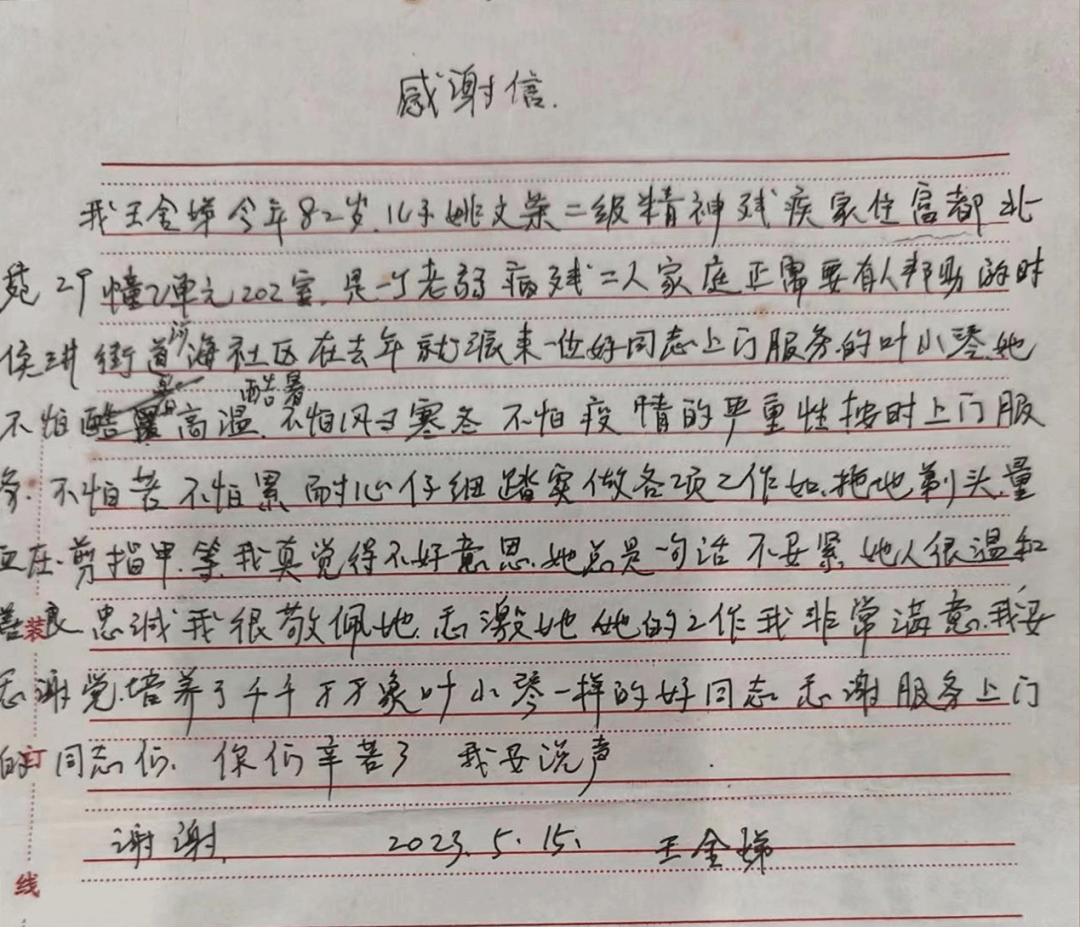 感谢信.
我王金娣今年82岁.儿子姚文荣二级精神残疾家住富都北
苑29幢2单元202室.是一个老弱病残二人家庭正需要有人帮助的时
侯 街道 海社区在去年就派来一位好同志上门服务的叶小琴她
酷暑
不怕 高温.不怕风雪寒冬 不怕疫情的严重性按时上门服
务.不怕苦不怕累 耐心仔细踏实做各项工作如.拖地剃头.量
血压.剪指甲.等.我真觉得不好意思.她总是一句话 不要紧.她人很温和
善良 忠诚 我很敬佩她.感激她 她的工作我非常满意.我要
感谢党.培养了千千万万象叶小琴一样的好同志 感谢服务上门
的同志们.你们辛苦了 我要说声
谢谢. 2023.5.15. 王金娣
装
订
线